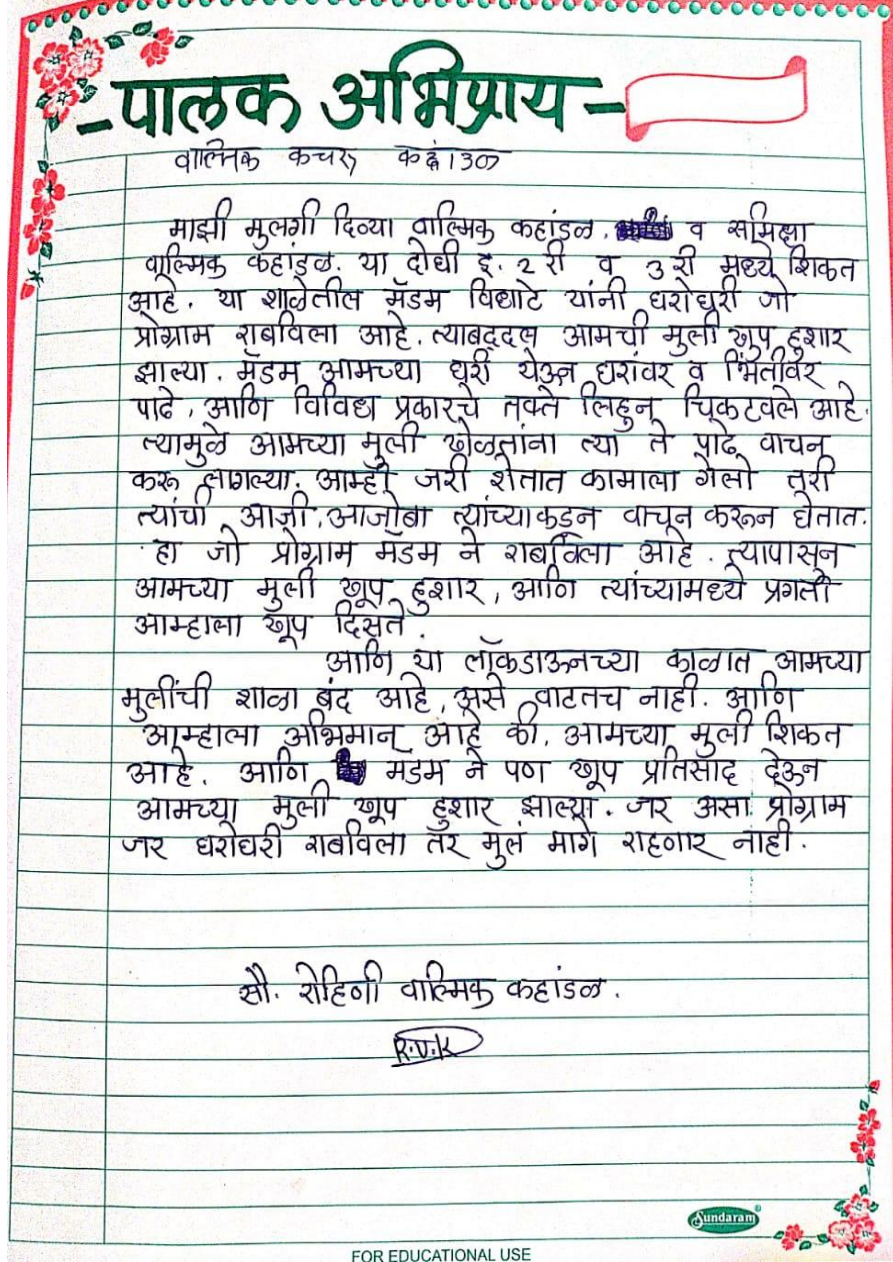 -पालक अभिप्राय-
वाल्मिक कचरू
माझी मुलगी दिव्या वाल्मिक कहांडळ. व समिक्षा
वाल्मिक कहांडळ. या दोघी इ. 2 री व 3 री मध्ये शिकत
आहे. या शाळेतील मॅडम विधाटे यांनी घरोघरी जो
प्रोग्राम राबविला आहे. त्याबद्दल आमची मुली खुप हुशार
झाल्या. मॅडम आमच्या घरी येऊन घरांवर व भिंतीवर
पाढे, आणि विविध प्रकारचे तक्ते लिहुन चिकटवले आहे.
त्यामुळे आमच्या मुली खेळतांना त्या ते पाढे वाचन
करू लागल्या. आम्ही जरी शेतात कामाला गेलो तरी
त्यांची आजी, आजोबा त्यांच्याकडुन वाचून करून घेतात.
हा जो प्रोग्राम मॅडम ने राबविला आहे. त्यापासुन
आमच्या मुली खूप हुशार, आणि त्यांच्यामध्ये प्रगती
आम्हाला खूप दिसते.
आणि या लॉकडाऊनच्या काळात आमच्या
मुलींची शाळा बंद आहे, असे वाटतच नाही. आणि
आम्हाला अभिमान आहे की, आमच्या मुली शिकत
आहे. आणि मडम ने पण खूप प्रतिसाद देऊन
आमच्या मुली खूप हुशार झाल्या. जर असा प्रोग्राम
जर घरोघरी राबविला तर मुलं मागे राहणार नाही.
सौ. रोहिणी वाल्मिक कहांडळ.
R.V.K
Sundaram
FOR EDUCATIONAL USE